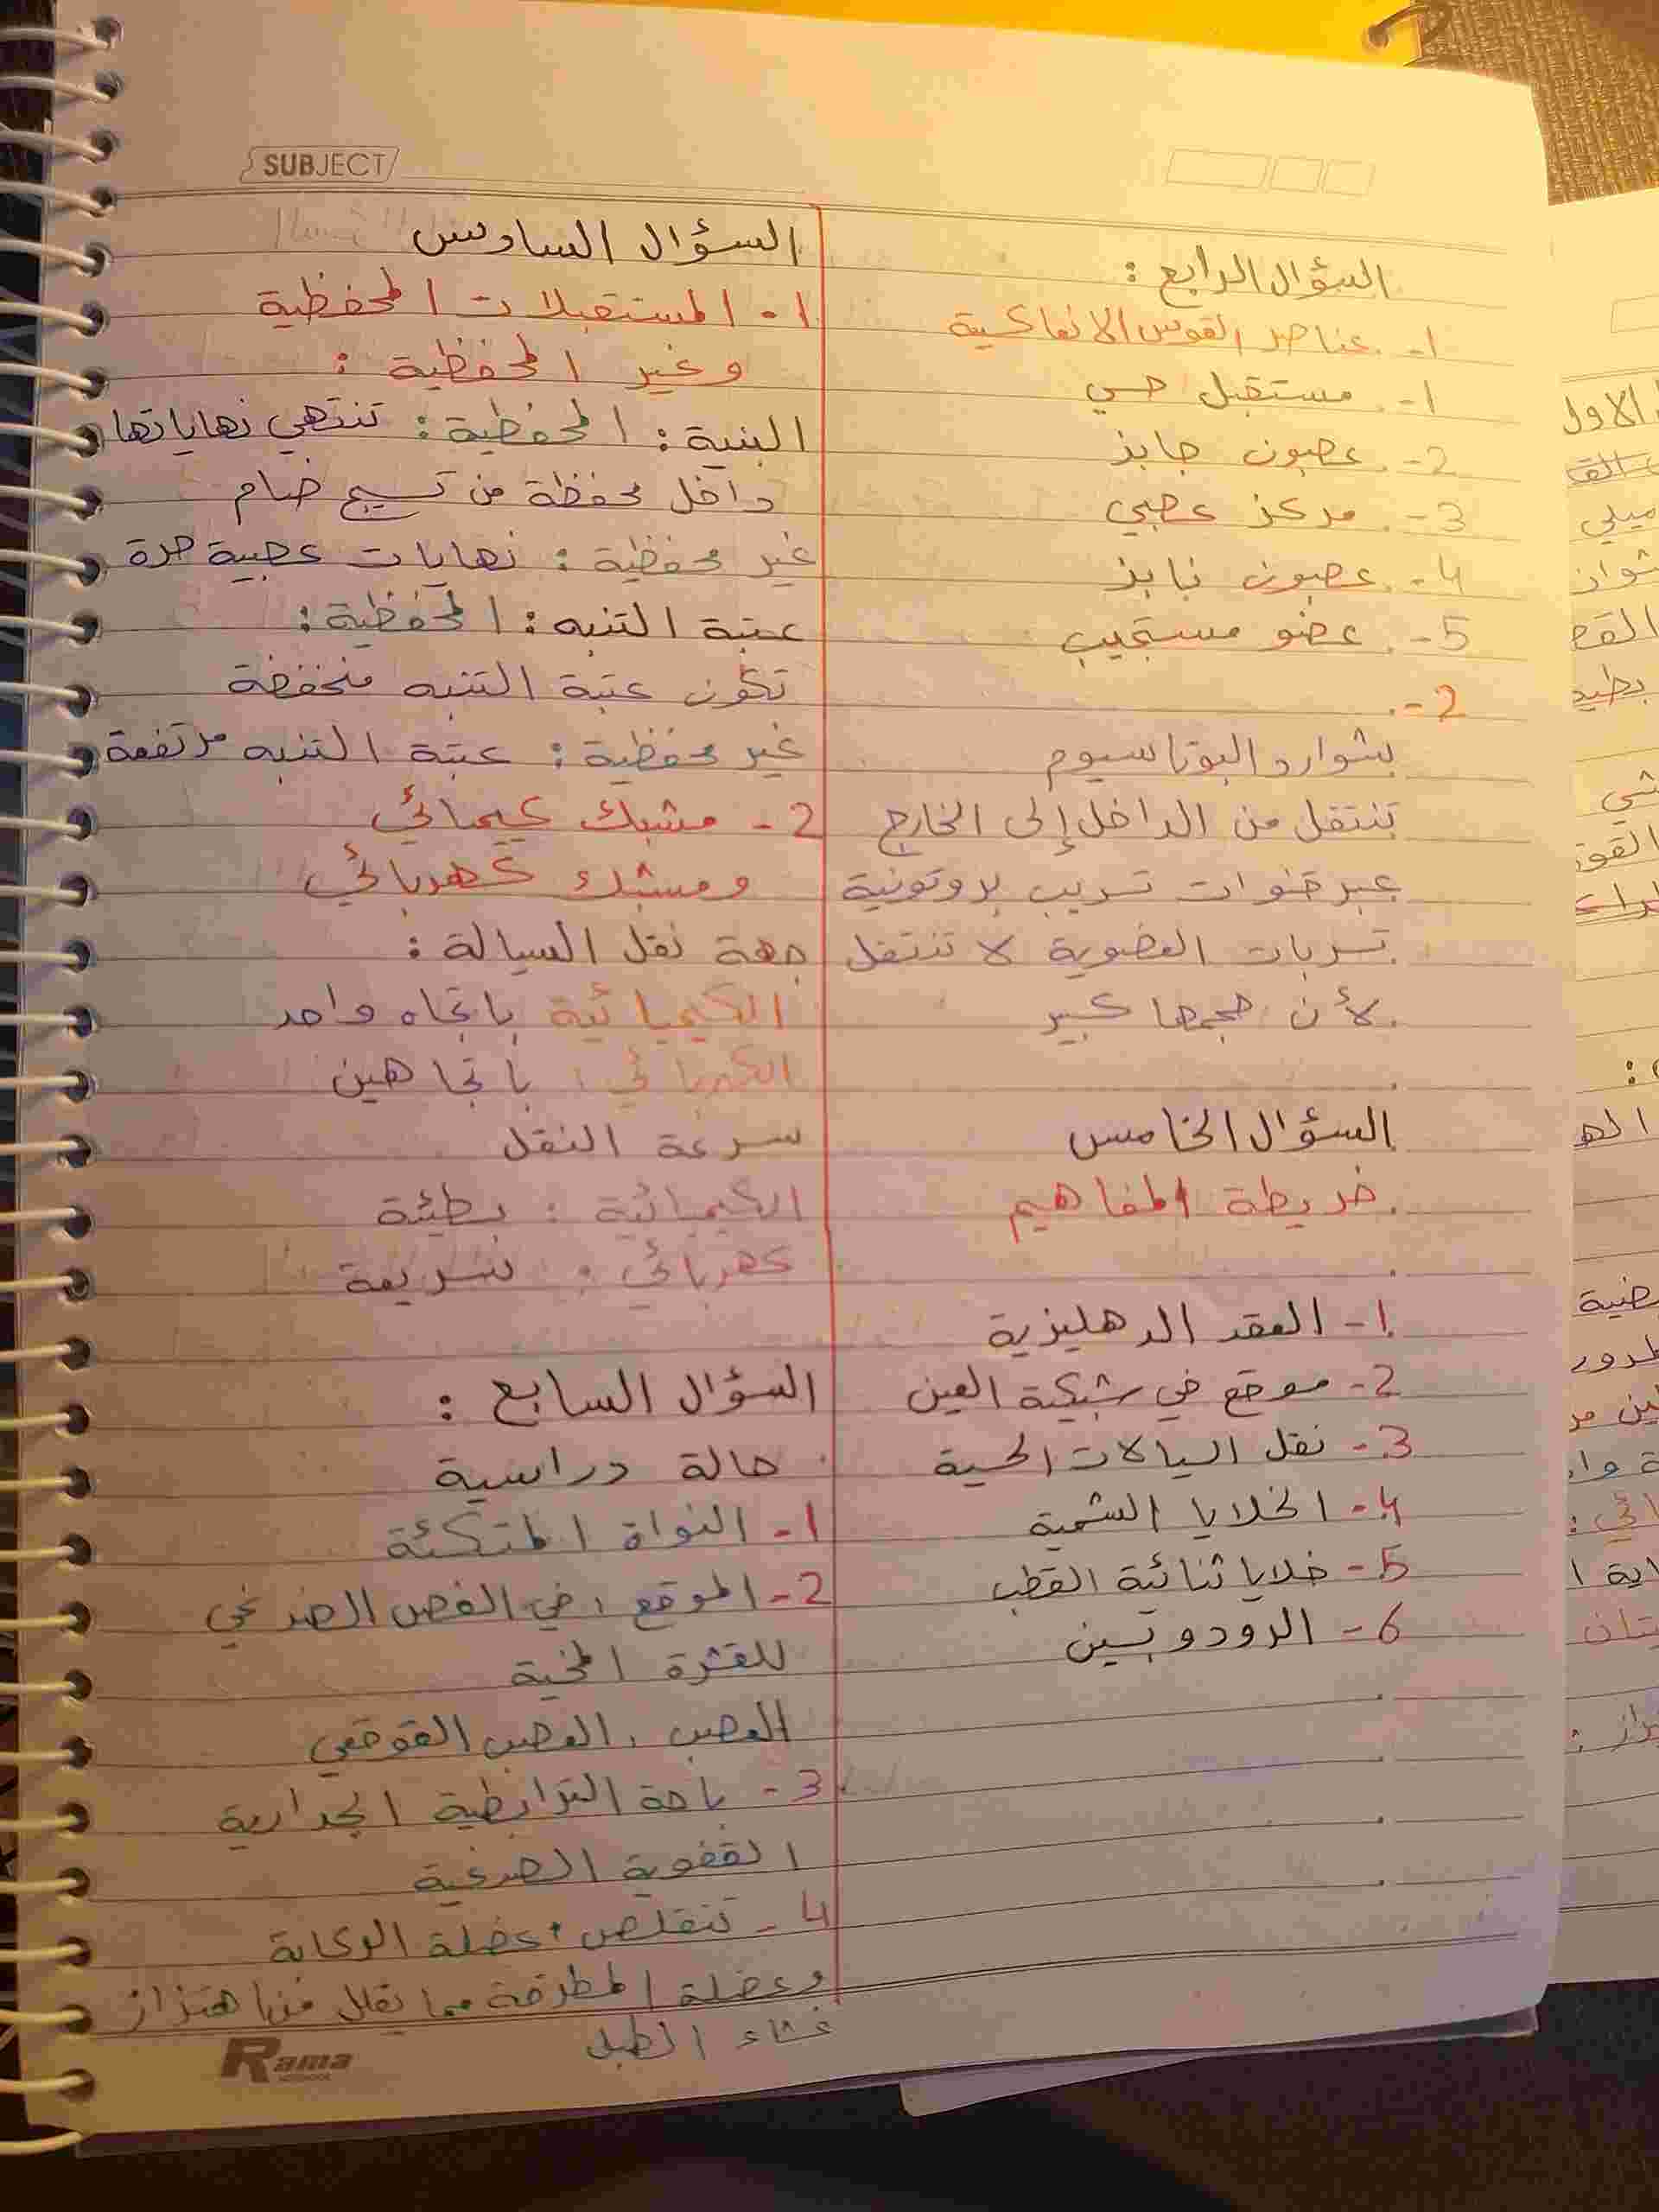 SUBJECT
السؤال الرابع :
1- عناصر القوس الانعاكسية
1- مستقبل حسي
2- عصبون جابذ
3- مركز عصبي
4- عصبون نابذ
5- عضو مستجيب
2-
بشوارد البوتاسيوم
تنتقل من الداخل إلى الخارج
عبر قنوات تسريب بروتونية
تسربات العضوية لا تنتقل
لأن حجمها كبير
السؤال الخامس
خريطة المفاهيم
1- العقد الدهليزية
2- موقع في شبكية العين
3- نقل السيالات الحسية
4- الخلايا الشمية
5- خلايا ثنائية القطب
6- الرودوبسين
السؤال السادس
1- المستقبلات المحفظية
وغير المحفظية :
البنية : المحفظية : تنتهي نهاياتها
داخل محفظة من نسيج ضام
غير محفظية : نهايات عصبية حرة
عتبة التنبه : المحفظية :
تكون عتبة التنبه منخفضة
غير محفظية : عتبة التنبه مرتفعة
2- مشبك كيميائي
ومشبك كهربائي
جهة نقل السيالة :
الكيميائية باتجاه واحد
الكهربائي : باتجاهين
سرعة النقل
الكيميائية : بطيئة
كهربائي : سريعة
السؤال السابع :
حالة دراسية
1- النواة المتكئة
2- الموقع : في الفص الصدغي
للقشرة المخية
العصب : العصب القوقعي
3- باحة الترابطية الجدارية
القفوية الصدغية
4- تتقلص عضلة الركابة
وعضلة المطرقة مما يقلل من اهتزاز
غشاء الطبل
Rama
الاول